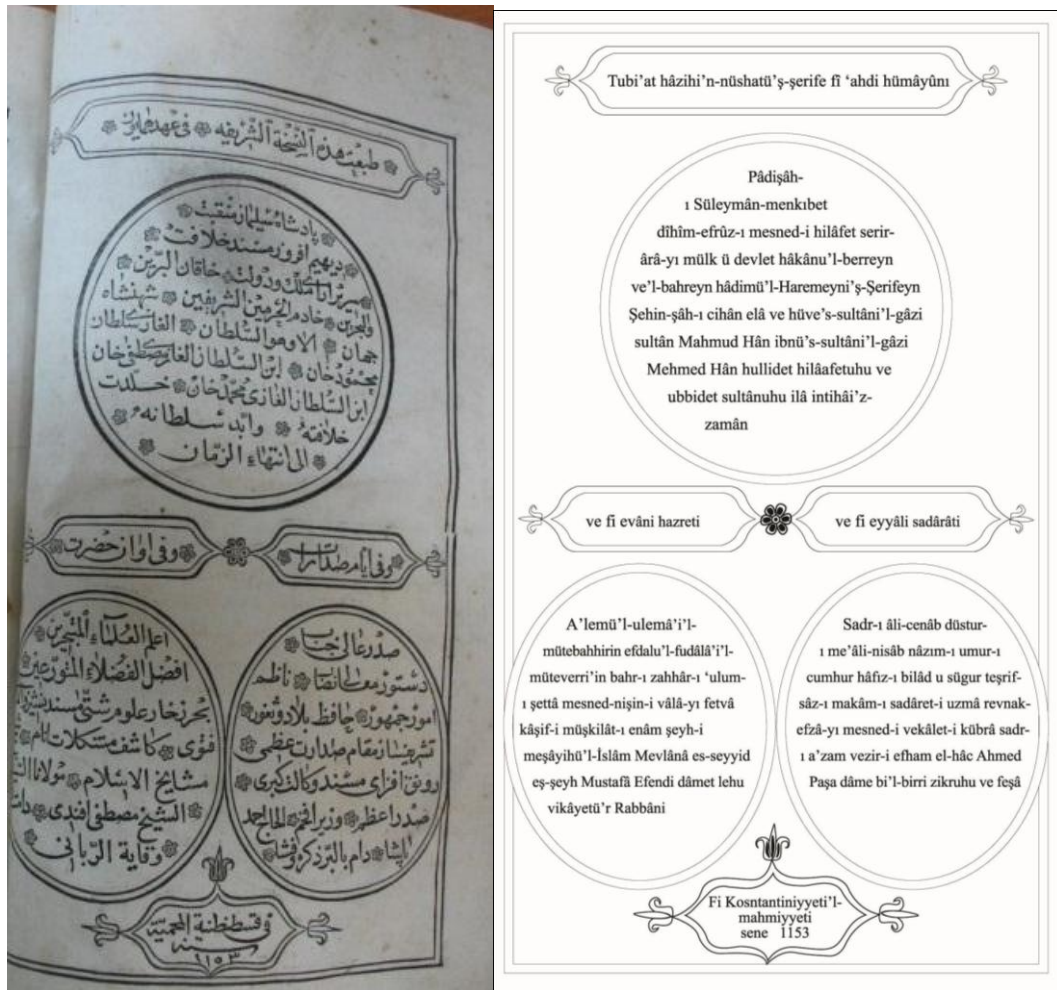 طبعت هذه النسخة الشريفه فى عهد همايون
پادشاه سليمان منقبت
ديهيم افروز مسند خلافت
سرير اراى ملك ودولت خاقان البرين
والبحرين خادم الحرمين الشريفين شهنشاه
جهان الا وهو السلطان الغازى سلطان
محمود خان ابن السلطان الغازى مصطفى خان
ابن السلطان الغازى محمد خان خلدت
خلافته وابد سلطانه
الى انتهاء الزمان
وفى ايام صدارت
وفى اوان حضرت
صدر عالى جناب
دستور معالى نصاب ناظم
امور جمهور حافظ بلاد وثغور
تشريف ساز مقام صدارت عظمى
رونق افزاى مسند وكالت كبرى
صدر اعظم وزير افخم الحاج احمد
پاشا دام بالبر ذكره وفشا
اعلم العلماء المتبحرين
افضل الفضلاء المتورعين
بحر زخار علوم شتى مسند نشين
فتوى كاشف مشكلات انام
مشايخ الاسلام مولانا
الشيخ مصطفى افندى
وقاية الربانى
فى قسطنطنية المحمية
سنه
١١٥٣
Tubi’at hâzihi’n-nüshatü’ş-şerife fî ‘ahdi hümâyûnı
Pâdişâh-
ı Süleymân-menkıbet
dîhîm-efrûz-ı mesned-i hilâfet serir-
ârâ-yı mülk ü devlet hâkânu’l-berreyn
ve’l-bahreyn hâdimü’l-Haremeyni’ş-Şerifeyn
Şehin-şâh-ı cihân elâ ve hüve’s-sultâni’l-gâzi
sultân Mahmud Hân ibnü’s-sultâni’l-gâzi
Mehmed Hân hullidet hilâafetuhu ve
ubbidet sultânuhu ilâ intihâi’z-
zamân
ve fî evâni hazreti
ve fî eyyâli sadârâti
A’lemü’l-ulemâ’i’l-
mütebahhirin efdalu’l-fudâlâ’i’l-
müteverri’in bahr-ı zahhâr-ı ‘ulum-
ı şettâ mesned-nişin-i vâlâ-yı fetvâ
kâşif-i müşkilât-ı enâm şeyh-i
meşâyihü’l-İslâm Mevlânâ es-seyyid
eş-şeyh Mustafâ Efendi dâmet lehu
vikâyetü’r Rabbâni
Sadr-ı âli-cenâb düstur-
ı me’âli-nisâb nâzım-ı umur-ı
cumhur hâfız-ı bilâd u sügur teşrif-
sâz-ı makâm-ı sadâret-i uzmâ revnak-
efzâ-yı mesned-i vekâlet-i kübrâ sadr-
ı a’zam vezir-i efham el-hâc Ahmed
Paşa dâme bi’l-birri zikruhu ve feşâ
Fi Kosntantiniyyeti’l-
mahmiyyeti
sene 1153